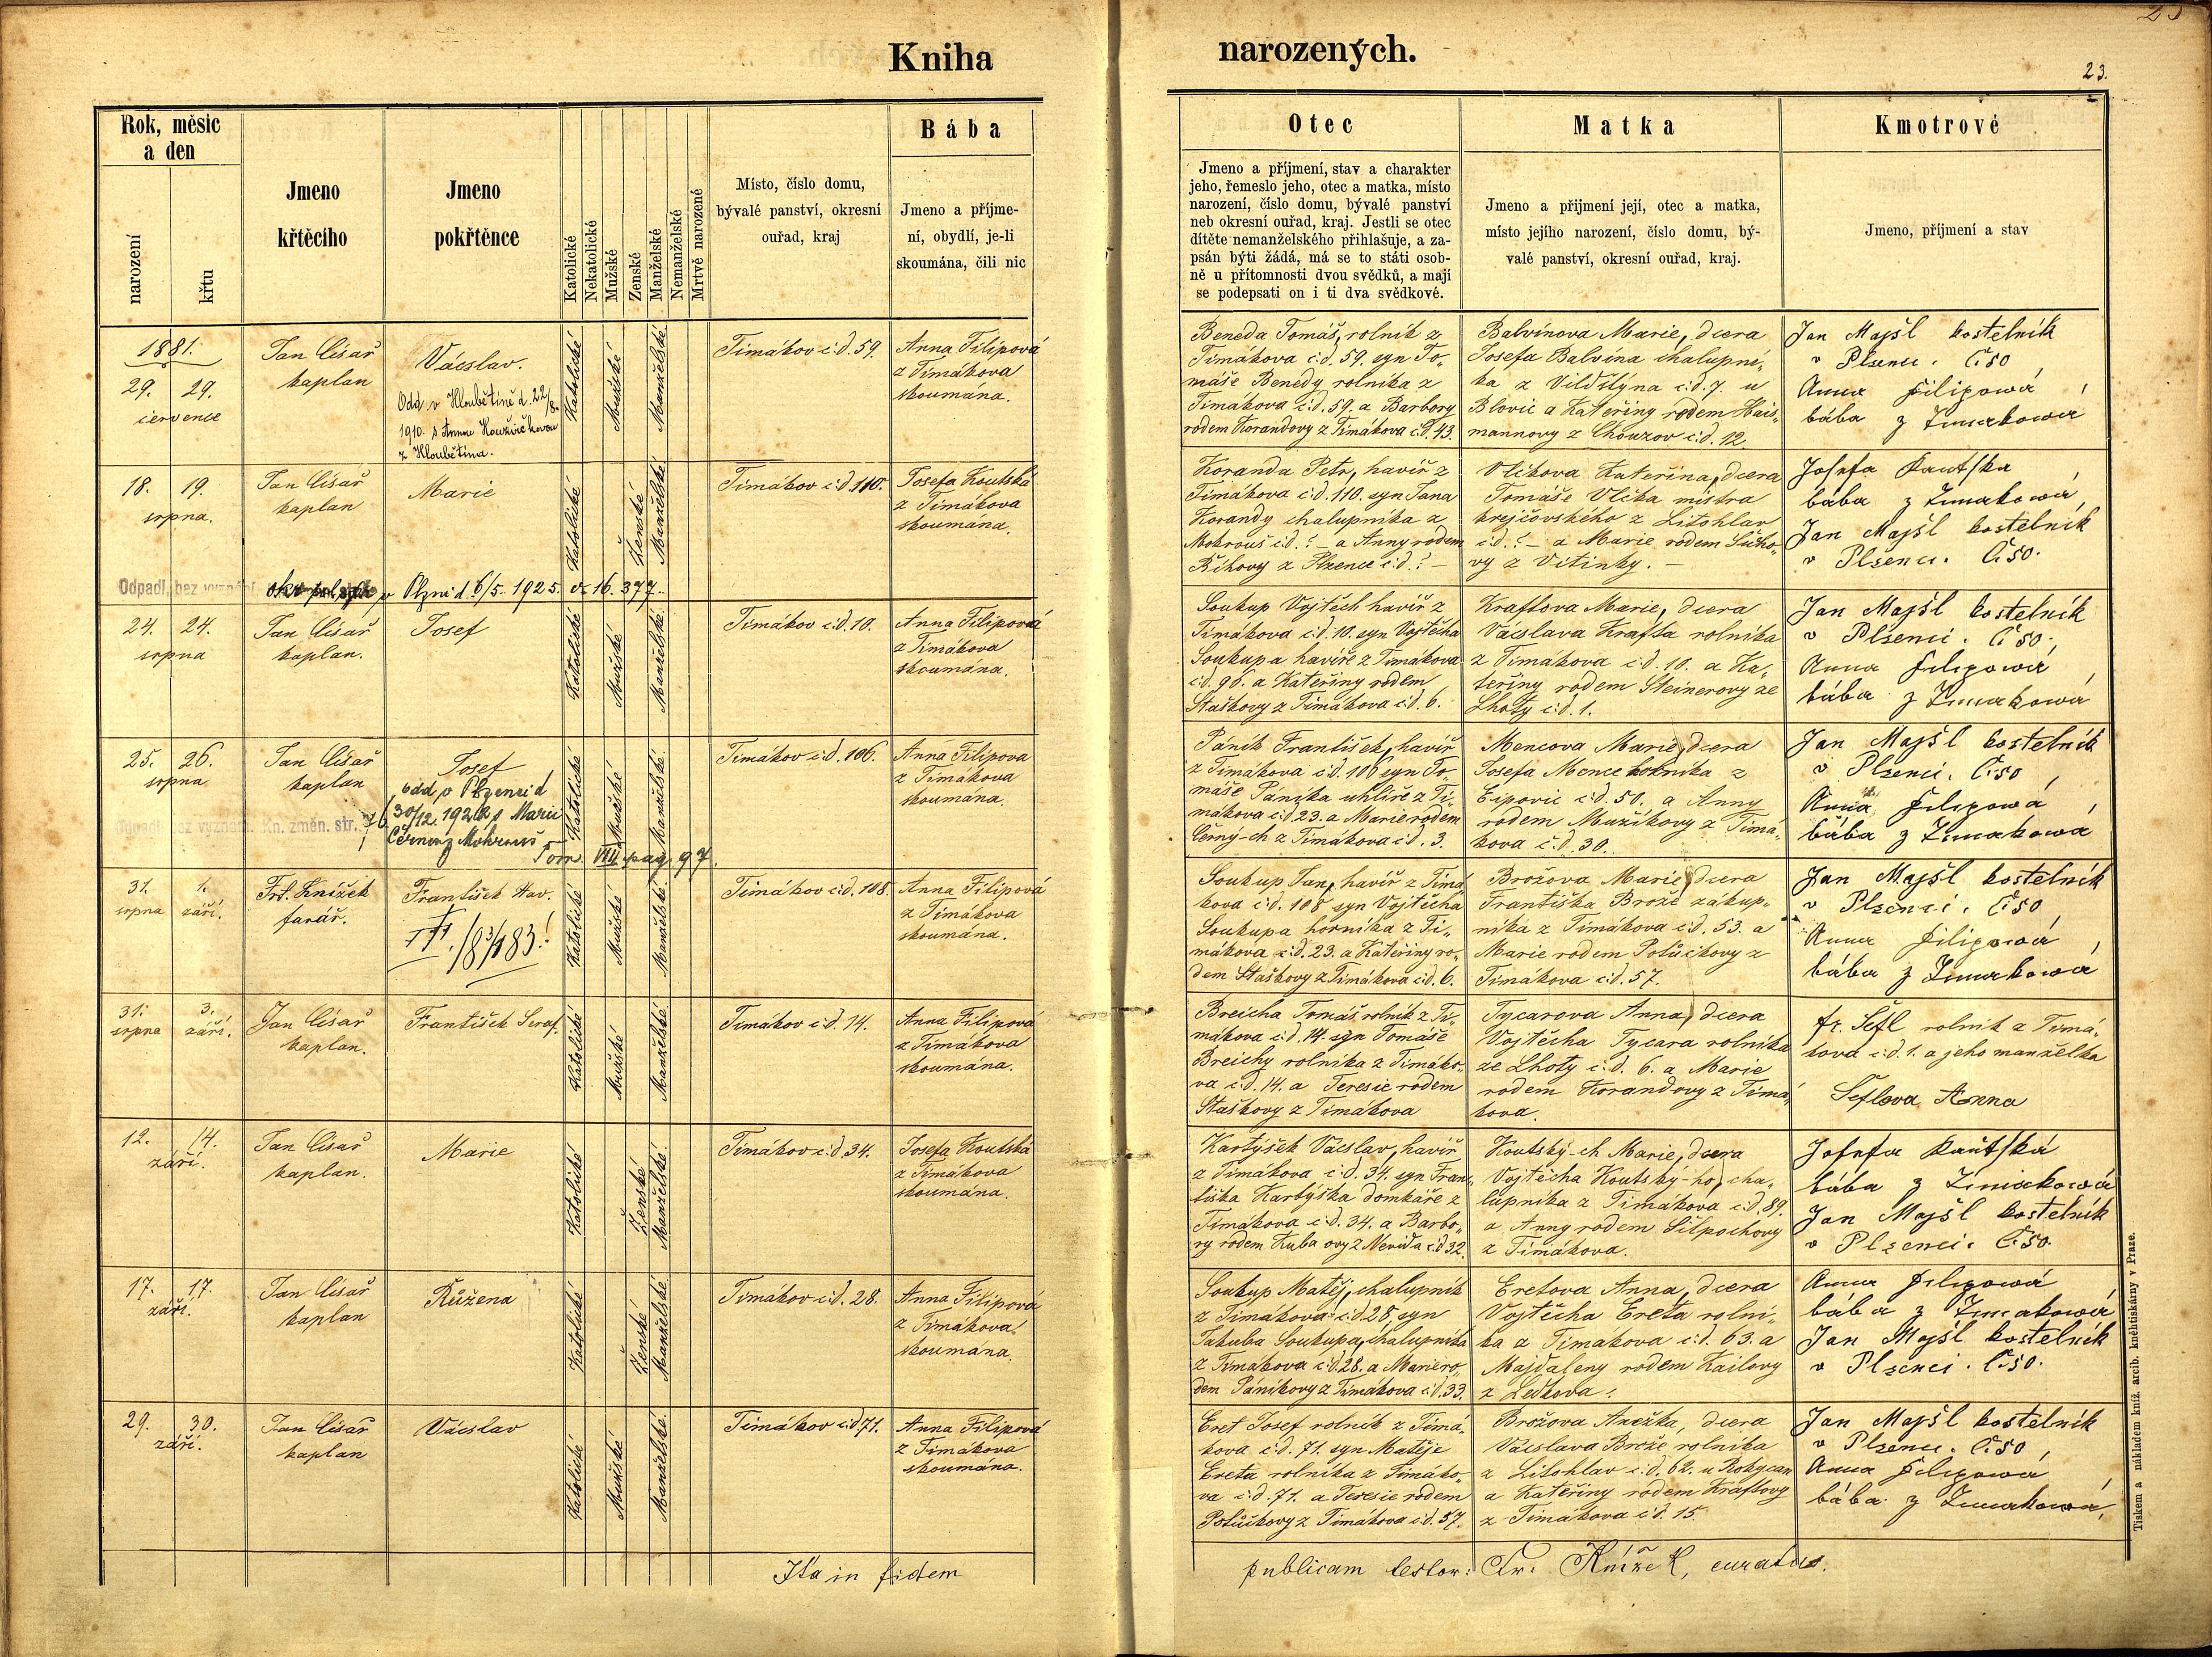 Kniha
narozených.
23.
Rok, měsíc
a den
narození
křtu
Jmeno
křtěcího
Jmeno
pokřtěnce
Katolické
Nekatolické
Mužské
Ženské
Manželské
Nemanželské
Mrtvě narozené
Místo, číslo domu,
bývalé panství, okresní
ouřad, kraj
Bába
Jmeno a příjme-
ní, obydlí, je-li
skoumána, čili nic
Otec
Jmeno a příjmení, stav a charakter
jeho, řemeslo jeho, otec a matka, místo
narození, číslo domu, bývalé panství
neb okresní ouřad, kraj. Jestli se otec
dítěte nemanželského přihlašuje, a za-
psán býti žádá, má se to státi osob-
ně u přítomnosti dvou svědků, a mají
se podepsati on i ti dva svědkové.
Matka
Jmeno a přijmení její, otec a matka,
místo jejího narození, číslo domu, bý-
valé panství, okresní ouřad, kraj.
Kmotrové
Jmeno, příjmení a stav
1881.
29. 29.
července
Jan Císař
kaplan
Václav.
Odd v Hloubětíně d. 22/8.
1910. s Annou Houžvičkovou
z Hloubětína.
Katolické
Mužské
Manželské
Timákov č.d. 59.
Anna Filipová
z Timákova
skoumána.
Beneda Tomáš, rolník z
Timákova č.d. 59. syn To-
máše Benedy rolníka z
Timákova č.d. 59. a Barbory
rodem Korandovy z Timákova č.d. 43.
Balvínova Marie, dcera
Josefa Balvína chalupní-
ka z Vildštýna č.d. 7. u
Blovic a Kateřiny rodem Hais-
mannovy z Chouzov č.d. 12.
Jan Majšl kostelník
v Plzenci. Č. 50
Anna Filipowá,
bába z Timakowa
18. 19.
srpna.
Jan Císař
kaplan
Marie
Katolické
Ženské
Manželské
Timákov č.d. 110.
Josefa Koutská
z Timákova
skoumána.
Koranda Petr, havíř z
Timákova č.d. 110. syn Jana
Korandy chalupníka z
Mokrouš č.d. ? — a Anny rodem
z Plzence č.d. ? —
Vlčkova Kateřina, dcera
Tomáše Vlčka mistra
krejčovského z Litohlav
č.d. ? — a Marie rodem
vy z Vitinky. —
Josefa Kautska
bába z Timakowa
Jan Majšl kostelník
v Plzenci. Č. 50.
Odpadl, bez vyznání
v Plzni d. 6/5. 1925. č. 16.377.
24. 24.
srpna
Jan Císař
kaplan.
Josef
Katolické
Mužské
Manželské
Timákov č.d. 10.
Anna Filipová
z Timákova
skoumána.
Soukup Vojtěch havíř z
Timákova č.d. 10. syn Vojtěcha
Soukupa havíře z Timákova
č.d. 96. a Kateřiny rodem
Staškovy z Timákova č.d. 6.
Kraftova Marie, dcera
Václava Krafta rolníka
z Timákova č.d. 10. a Ka-
teřiny rodem Steinerovy ze
Lhoty č.d. 1.
Jan Majšl kostelník
v Plzenci. Č. 50,
Anna Filipowá,
bába z Timakowa
25. 26.
srpna
Jan Císař
kaplan
Josef
odd v Plzenci d
30/12. 192 s Marií
Černou z Mokrouš
Odpadl bez vyznání. Kn. změn. str.
Tom. VIII. pag. 97.
Katolické
Mužské
Manželské
Timakov č.d. 106.
Anna Filipova
z Timákova
skoumána.
Pánik František, havíř
z Timákova č.d. 106 syn To-
máše Pánika uhlíře z Ti-
mákova č.d. 23. a Marie rodem
Černý-ch z Timákova č.d. 3.
Mencova Marie, dcera
Josefa Mence z
Eipovic č.d. 50. a Anny
rodem Mužíkovy z Timá-
kova č.d. 30.
Jan Majšl kostelník
v Plzenci. Č. 50,
Anna Filipowá,
bába z Timakowá
31. 1.
srpna září.
Frt. Knížek
farář.
František Xav.
††. /8 3/1 83!
Katolické
Mužské
Manželské
Timákov č.d. 108.
Anna Filipová
z Timákova
skoumána.
Soukup Jan, havíř z Timá-
kova č.d. 108 syn Vojtěcha
Soukupa horníka z Ti-
mákova č.d. 23. a Kateřiny ro-
dem Staškovy z Timákova č.d. 6.
Brožova Marie, dcera
Františka Brože zákup-
níka z Timákova č.d. 53. a
Marie rodem Potůčkovy z
Timákova č.d. 57.
Jan Majšl kostelník
v Plzenci. Č. 50,
Anna Filipowá,
bába z Timakowá
31. 3.
srpna září.
Jan Císař
kaplan.
František Seraf.
Katolické
Mužské
Manželské
Timákov č.d. 14.
Anna Filipová
z Timákova
skoumána.
Breicha Tomáš rolník z Ti-
mákova č.d. 14. syn Tomáše
Breichy rolníka z Timáko-
va č.d. 14. a Teresie rodem
Staškovy z Timákova
Tycarova Anna, dcera
Vojtěcha Tycara rolníka
ze Lhoty č.d. 6. a Marie
rodem Korandovy z Timá-
kova.
fr. Šefl rolník z Timá-
kova č.d. 1. a jeho manželka
Šeflova Anna
12. 14.
září.
Jan Císař
kaplan.
Marie
Katolické
Ženské
Manželské
Timákov č.d. 34.
Josefa Koutská
z Timákova
skoumána.
Kartýšek Václav, havíř
z Timákova č.d. 34. syn Fran-
tiška Kartýška domkáře z
Timákova č.d. 34. a Barbo-
ry rodem Kuba ovy z Nevida č.d 32.
Koutský-ch Marie, dcera
Vojtěcha Koutský-ho, cha-
lupníka z Timákova č.d. 89.
a Anny rodem Šilpochovy
z Timákova.
Josefa Kautská
bába z Timakowá
Jan Majšl kostelník
v Plzenci. Č. 50.
17. 17.
září.
Jan Císař
kaplan
Růžena
Katolické
Ženské
Manželské
Timákov č.d. 28.
Anna Filipová
z Timákova
skoumána.
Soukup Matěj, chalupník
z Timákova č.d 28, syn
Jakuba Soukupa, chalupníka
z Timákova č.d. 28. a Marie ro-
dem Pánikovy z Timákova č.d. 33.
Eretova Anna, dcera
Vojtěcha Ereta rolní-
ka z Timákova č.d. 63. a
Majdaleny rodem Kailovy
z Ledkova.
Anna Filipowá
bába z Timakowá
Jan Majšl kostelník
v Plzenci. Č. 50.
29. 30.
září.
Jan Císař
kaplan
Václav
Katolické
Mužské
Manželské
Timákov č.d. 71.
Anna Filipová
z Timákova
skoumána.
Eret Josef rolník z Timá-
kova č.d. 71. syn Matěje
Ereta rolníka z Timáko-
va č.d. 71. a Teresie rodem
Potůčkovy z Timákova č.d. 57.
Brožova Anežka, dcera
Václava Brože rolníka
z Litohlav č.d. 62. u Rokycan
a Kateřiny rodem Kraftovy
z Timákova č.d. 15.
Jan Majšl kostelník
v Plzenci. Č. 50,
Anna Filipowá
bába z Timakowá,
Ita in fidem publicam testor: Fr. Knížek, curatus.
Tiskem a nákladem kníž. arcib. kněhtiskárny v Praze.